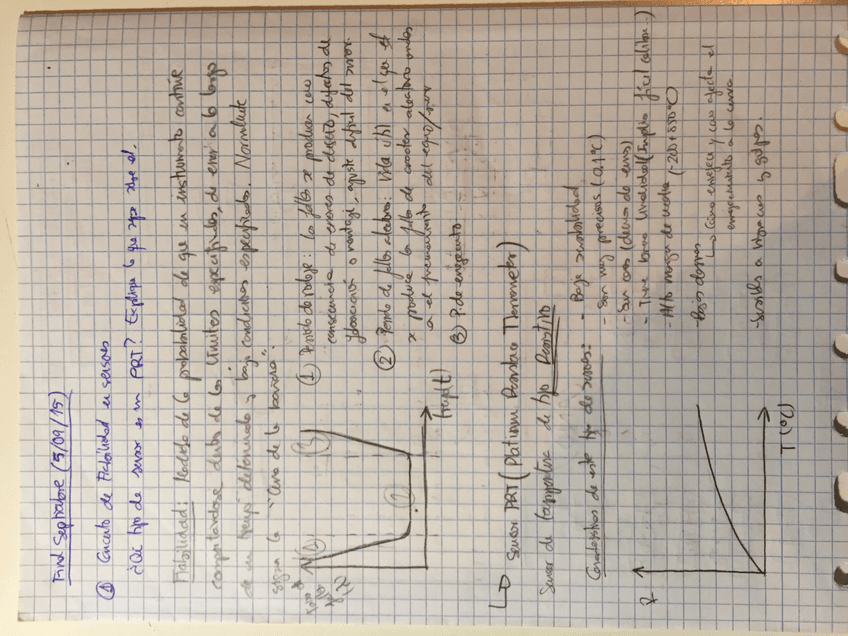 Final Septiembre (5/09/15)
① Concepto de Fiabilidad en sensores
¿Qué tipo de sensor es un PRT? Explique lo que sepa sobre el.
Fiabilidad: Medida de la probabilidad de que un instrumento continúe
comportándose dentro de los límites especificados, de error a lo largo
de un tiempo determinado y bajo condiciones especificadas. Normalmente
la "Curva de la bañera".
① Periodo de rodaje: Los fallos se producen como
consecuencia de errores de diseño, defectos de
fabricación o montaje, ajuste del sensor
② Periodo de fallos aleatorios: Vida útil en el que
se produce los fallos de caracter aleatorio
en el funcionamiento del
③ P. de envejecimiento
① ② ③
tiempo (t)
Sensor PRT (Platinum Resistance Thermometer)
Sensor de temperatura de tipo Resistivo
Características de este tipo de sensores: - Baja sensibilidad
- Son muy precisas (0,1ºC)
- Son caros
- Tiene buena linealidad (Implica fácil calibra..)
- Alto margen de medida (-200 +850ºC)
- Bajas derivas
Cómo envejece y como afecta el
envejecimiento a la curva
- Sensible a vibraciones y golpes.
R
T (ºC)